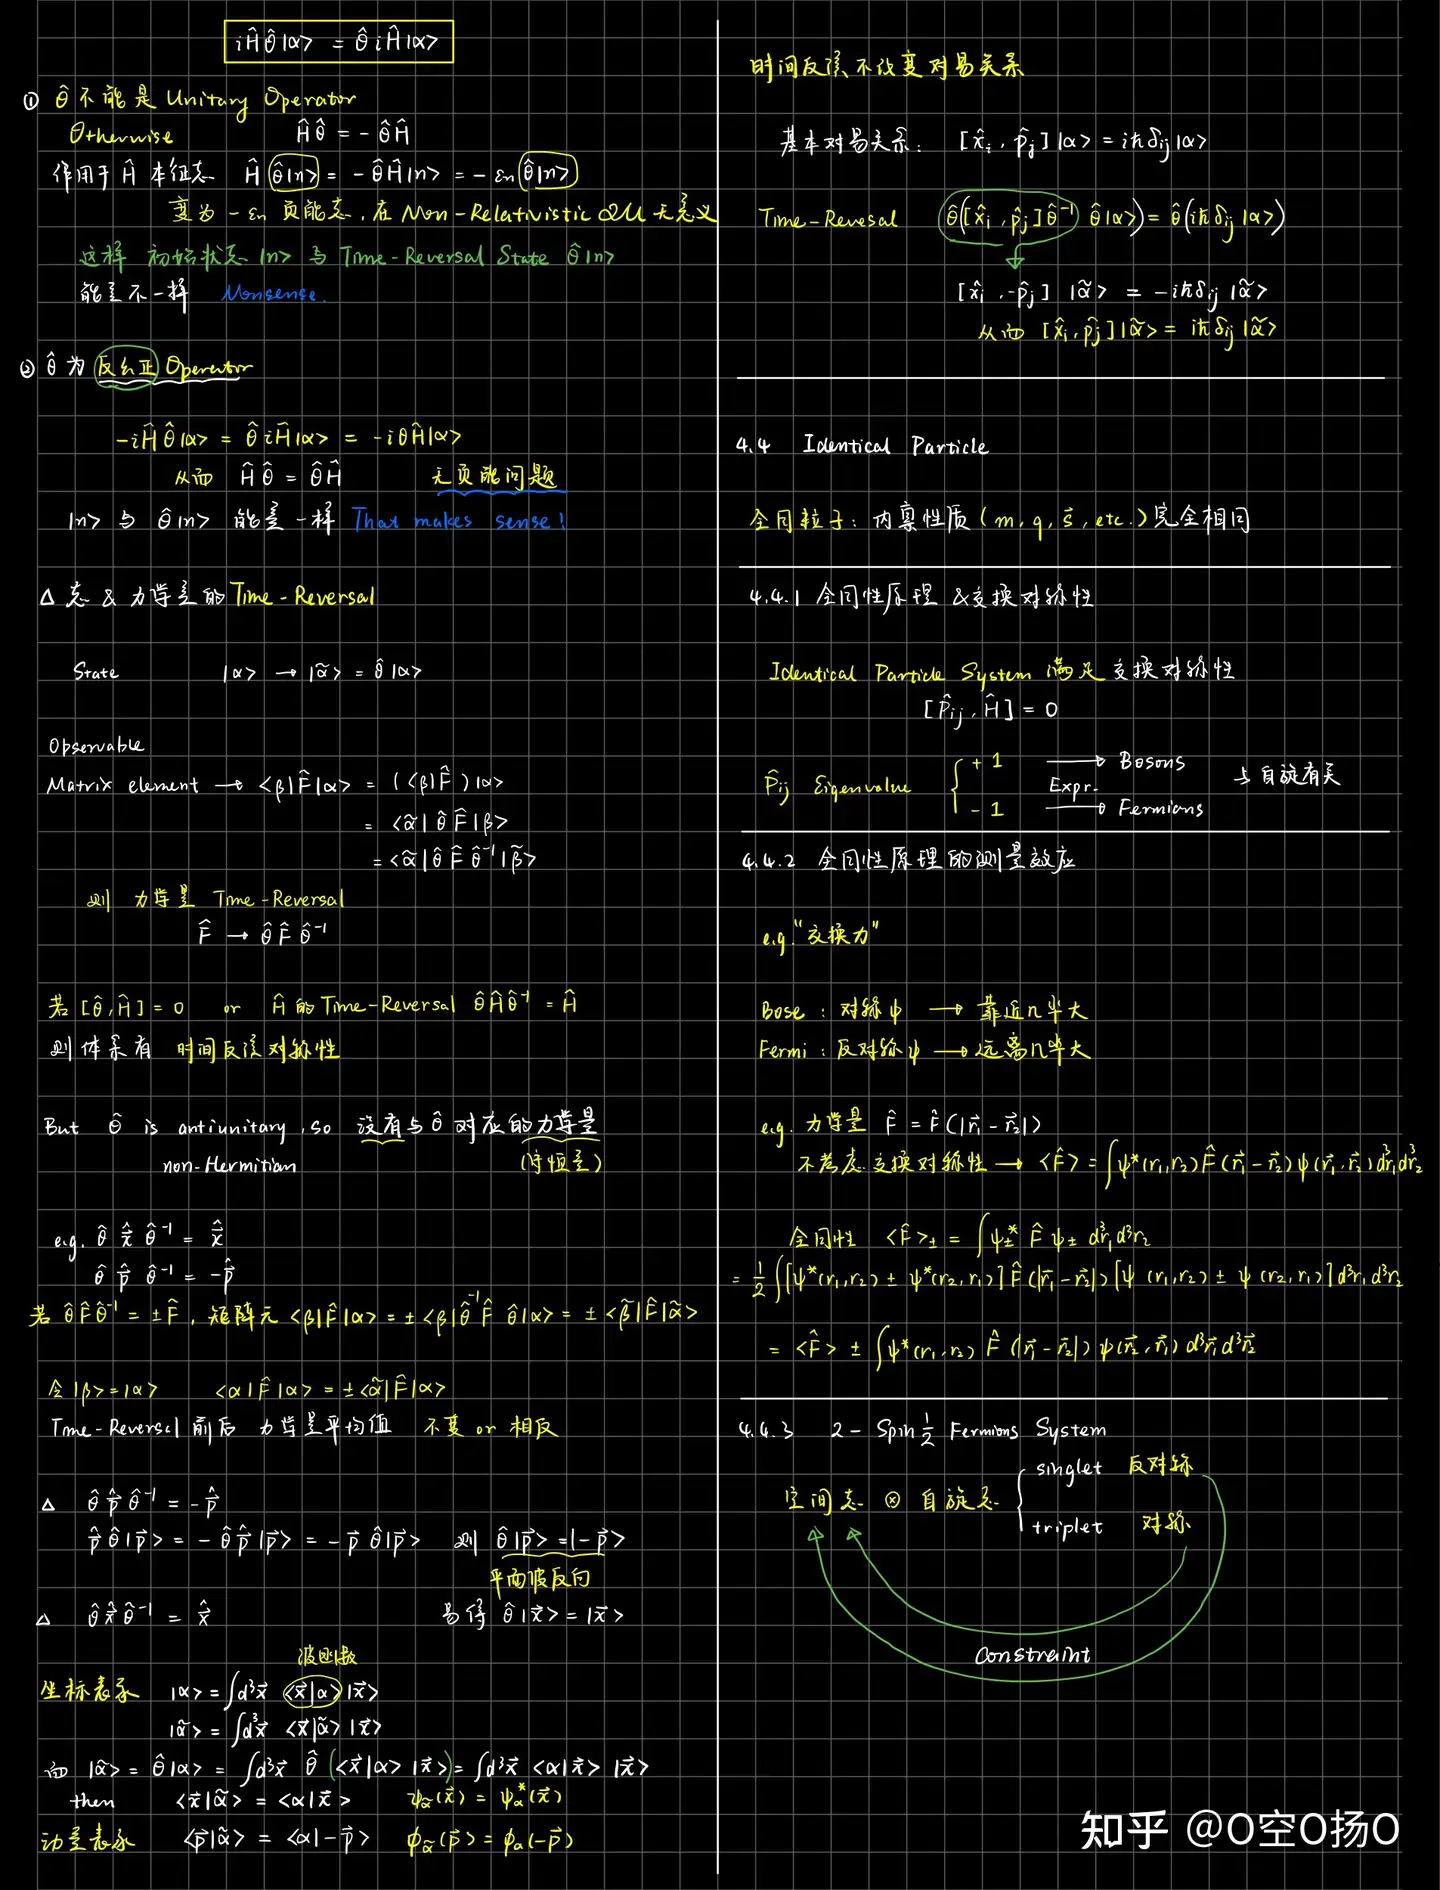 iĤθ̂|α> = θ̂iĤ|α>
① θ̂不能是 Unitary Operator
Otherwise Ĥθ̂ = -θ̂Ĥ
作用于Ĥ本征态 Ĥθ̂|n> = -θ̂Ĥ|n> = -εn θ̂|n>
变为 -εn 负能态, 在 Non-Relativistic QM 无意义
这样 初始状态 |n> 与 Time-Reversal State θ̂|n>
能量不一样 Nonsense.
② θ̂为反幺正 Operator
-iĤθ̂|α> = θ̂iĤ|α> = -iθĤ|α>
从而 Ĥθ̂ = θ̂Ĥ 无负能问题
|n> 与 θ̂|n> 能量一样 That makes sense!
△ 态 & 力学量的 Time-Reversal
State |α> → |α̃> = θ̂|α>
Observable
Matrix element → <β|F̂|α> = (<β|F̂)|α>
= <α̃|θ̂F̂|β>
= <α̃|θ̂F̂θ̂⁻¹|β̃>
则 力学量 Time-Reversal
F̂ → θ̂F̂θ̂⁻¹
若[θ̂,Ĥ]=0 or Ĥ的Time-Reversal θ̂Ĥθ̂⁻¹ = Ĥ
则体系有 时间反演对称性
But θ̂ is antiunitary, so 没有与θ̂对应的力学量
non-Hermitian (守恒量)
e.g. θ̂x̂⃗θ̂⁻¹ = x̂⃗
θ̂p̂⃗θ̂⁻¹ = -p̂⃗
若 θ̂F̂θ̂⁻¹ = ±F̂, 矩阵元 <β|F̂|α> = ±<β|θ̂⁻¹F̂θ̂|α> = ±<β̃|F̂|α̃>
令|β>=|α> <α|F̂|α> = ±<α̃|F̂|α>
Time-Reversal 前后 力学量平均值 不变 or 相反
△ θ̂p̂⃗θ̂⁻¹ = -p̂⃗
p̂⃗θ̂|p⃗> = -θ̂p̂⃗|p⃗> = -p⃗θ̂|p⃗> 则 θ̂|p⃗> = |-p⃗>
平面波反向
△ θ̂x̂⃗θ̂⁻¹ = x̂⃗ 易得 θ̂|x⃗> = |x⃗>
波函数
坐标表象 |α> = ∫d³x⃗ <x⃗|α>|x⃗>
|α̃> = ∫d³x⃗ <x⃗|α̃>|x⃗>
而 |α̃> = θ̂|α> = ∫d³x⃗ θ̂(<x⃗|α>|x⃗>) = ∫d³x⃗ <α|x⃗>|x⃗>
then <x⃗|α̃> = <α|x⃗> ψα̃(x⃗) = ψα*(x⃗)
动量表象 <p⃗|α̃> = <α|-p⃗> φα̃(p⃗) = φα(-p⃗)
时间反演不改变对易关系
基本对易关系: [x̂i, p̂j]|α> = iħδij|α>
Time-Revesal θ̂([x̂i, p̂j]θ̂⁻¹ θ̂|α>) = θ̂(iħδij|α>)
[x̂i, -p̂j] |α̃> = -iħδij|α̃>
从而 [x̂i, p̂j]|α̃> = iħδij|α̃>
4.4 Identical Particle
全同粒子: 内禀性质(m, q, s⃗, etc.)完全相同
4.4.1 全同性原理 & 交换对称性
Identical Particle System 满足 交换对称性
[P̂ij, Ĥ] = 0
P̂ij Eigenvalue { +1 → Bosons
Expr. 与自旋有关
-1 → Fermians
4.4.2 全同性原理的测量效应
e.g. "交换力"
Bose : 对称ψ → 靠近几率大
Fermi : 反对称ψ → 远离几率大
e.g. 力学量 F̂ = F̂(|r⃗1-r⃗2|)
不考虑交换对称性 → <F̂> = ∫ψ*(r1,r2)F̂(r⃗1-r⃗2)ψ(r⃗1,r⃗2)d³r1d³r2
全同性 <F̂>± = ∫ψ±* F̂ ψ± d³r1d³r2
= 1/2 ∫[ψ*(r1,r2) ± ψ*(r2,r1)]F̂(|r⃗1-r⃗2|)[ψ(r1,r2) ± ψ(r2,r1)]d³r1d³r2
= <F̂> ± ∫ψ*(r1,r2) F̂(|r⃗1-r⃗2|) ψ(r⃗2,r⃗1) d³r⃗1d³r⃗2
4.4.3 2-Spin 1/2 Fermions System
singlet 反对称
空间态 ⊗ 自旋态 {
triplet 对称
Constraint
知乎 @O空O扬O